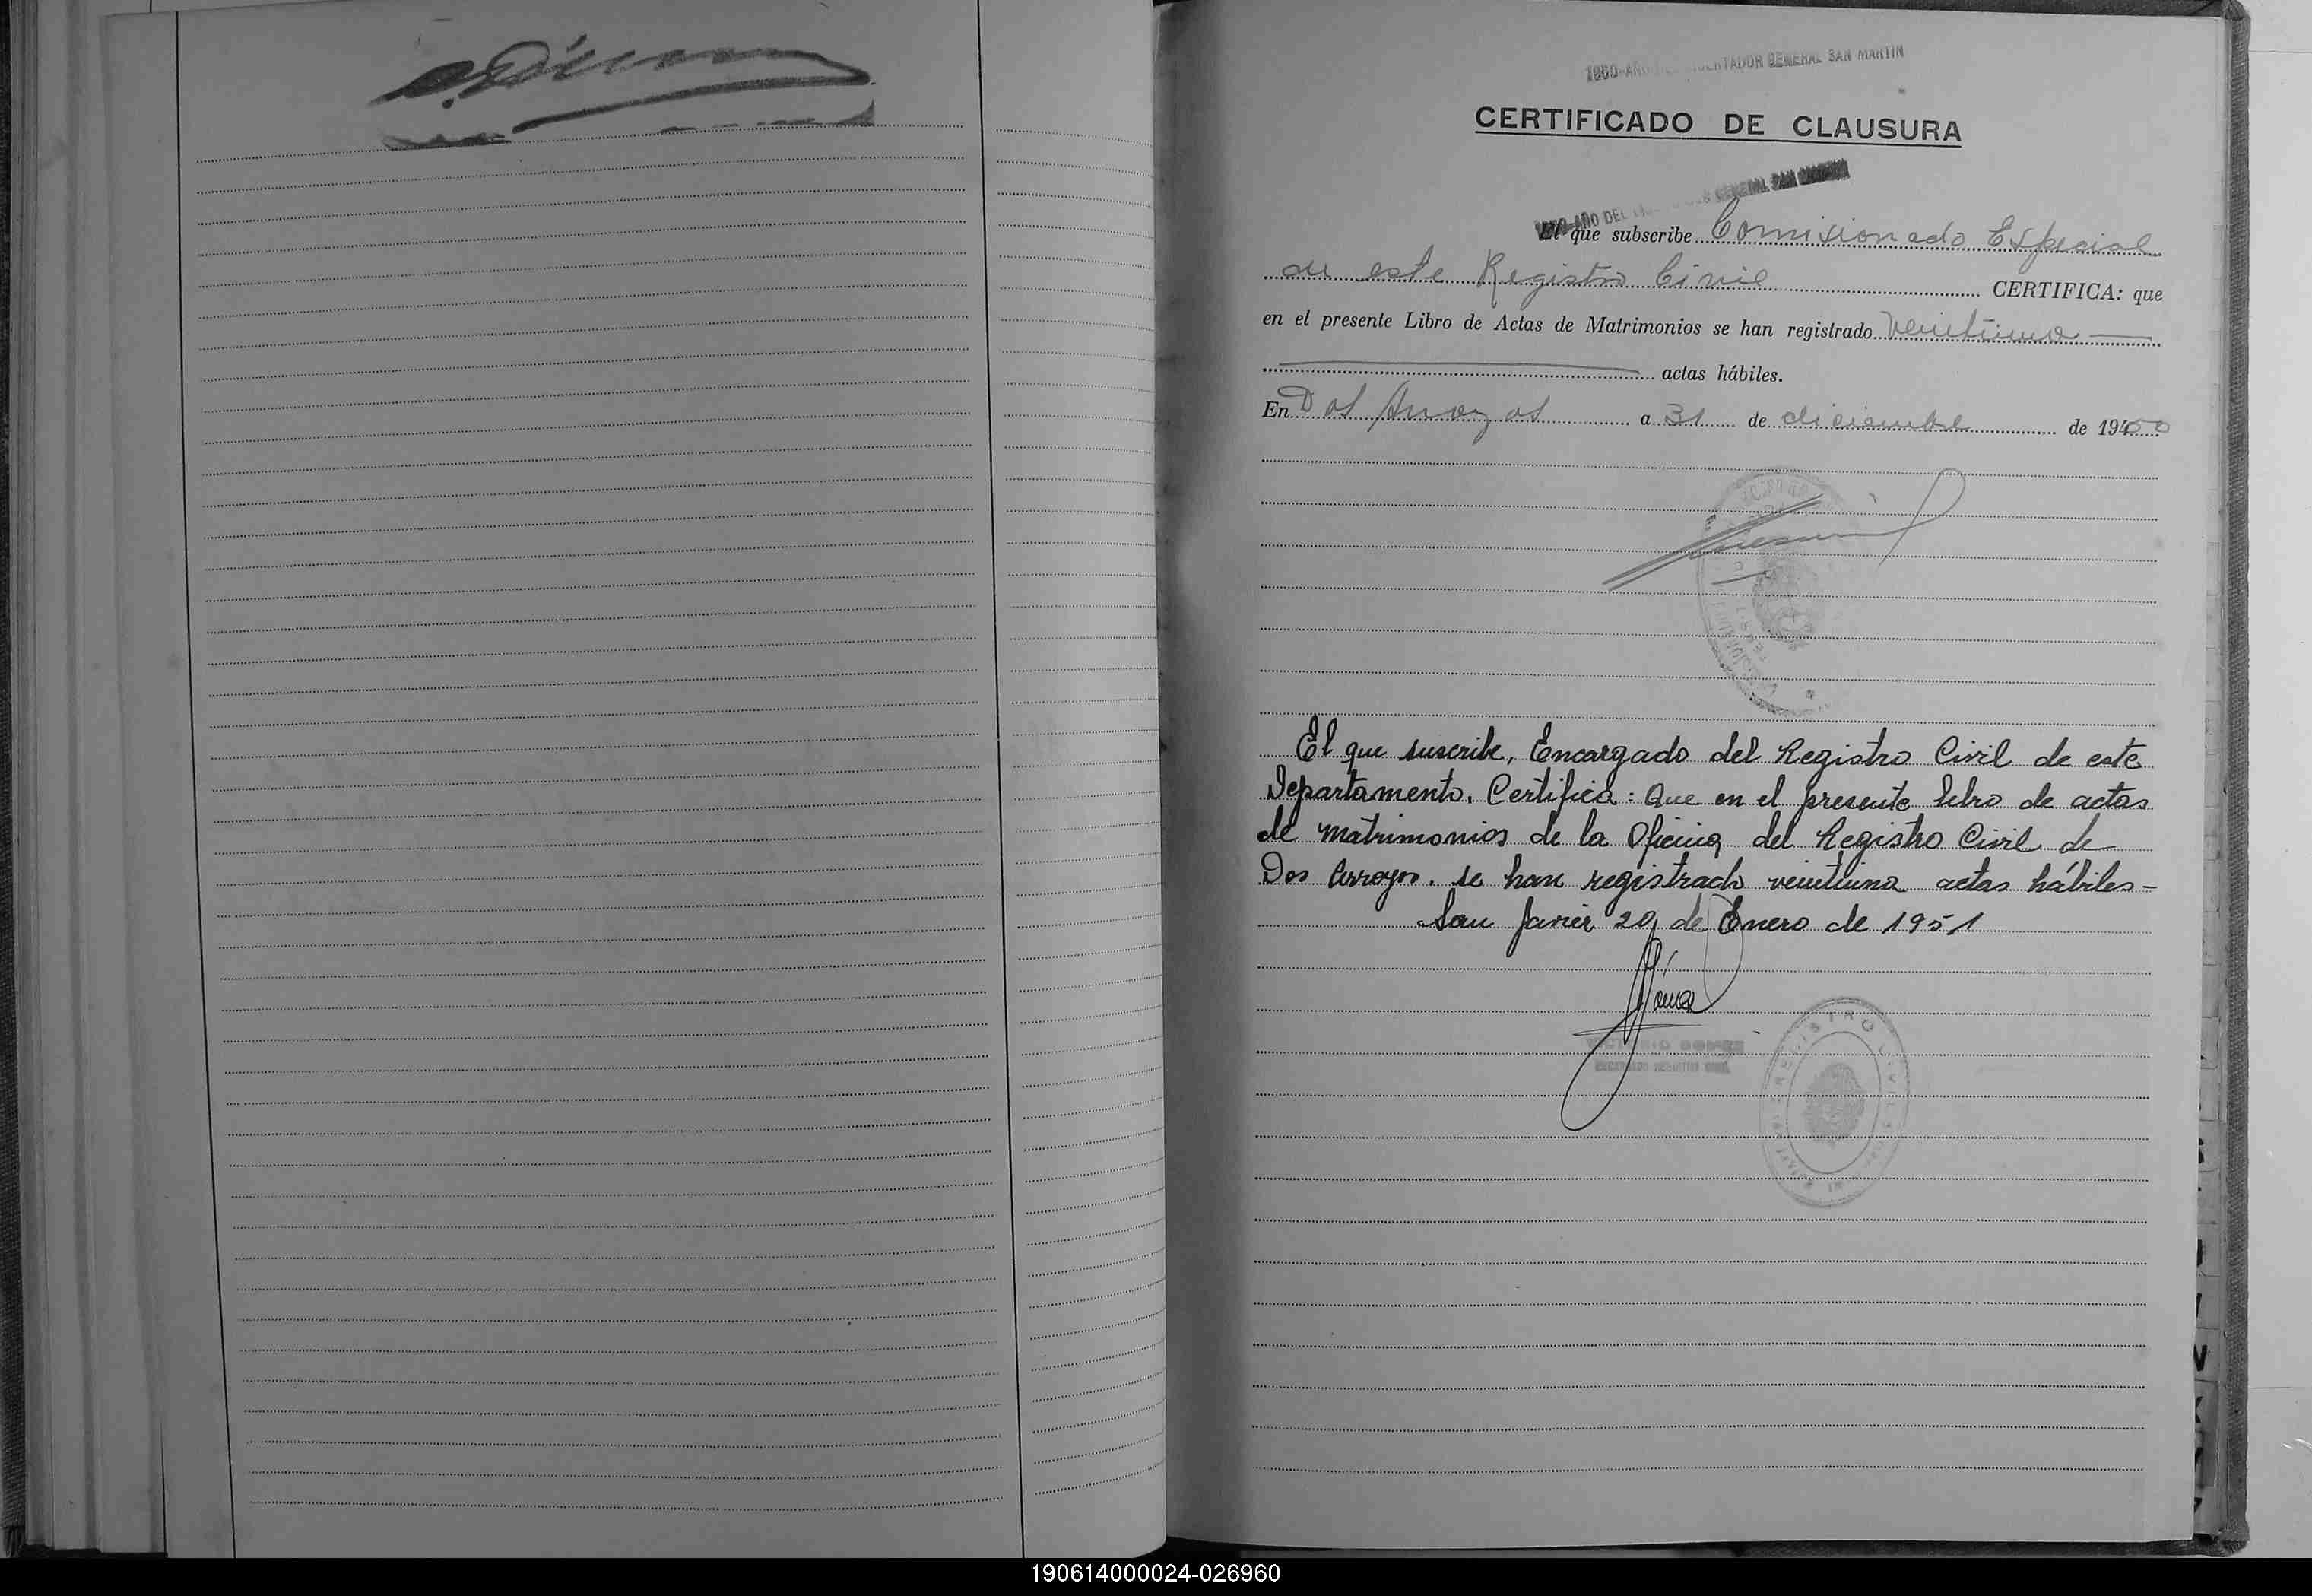 GENERAL SAN MARTIN
CERTIFICADO DE CLAUSURA
AÑO DEL GENERAL SAN
El que subscribe Comisionado Especial
de este Registro Civil CERTIFICA: que
en el presente Libro de Actas de Matrimonios se han registrado veintiuna
actas hábiles.
En Dos Arroyos a 31 de diciembre de 1950
El que suscribe, Encargado del Registro Civil de este
Departamento. Certifica: Que en el presente libro de actas
de matrimonios de la Oficina del Registro Civil de
Dos Arroyos. se han registrado veintiuna actas hábiles-
San Javier 20 de Enero de 1951
REGISTRO CIVIL
190614000024-026960